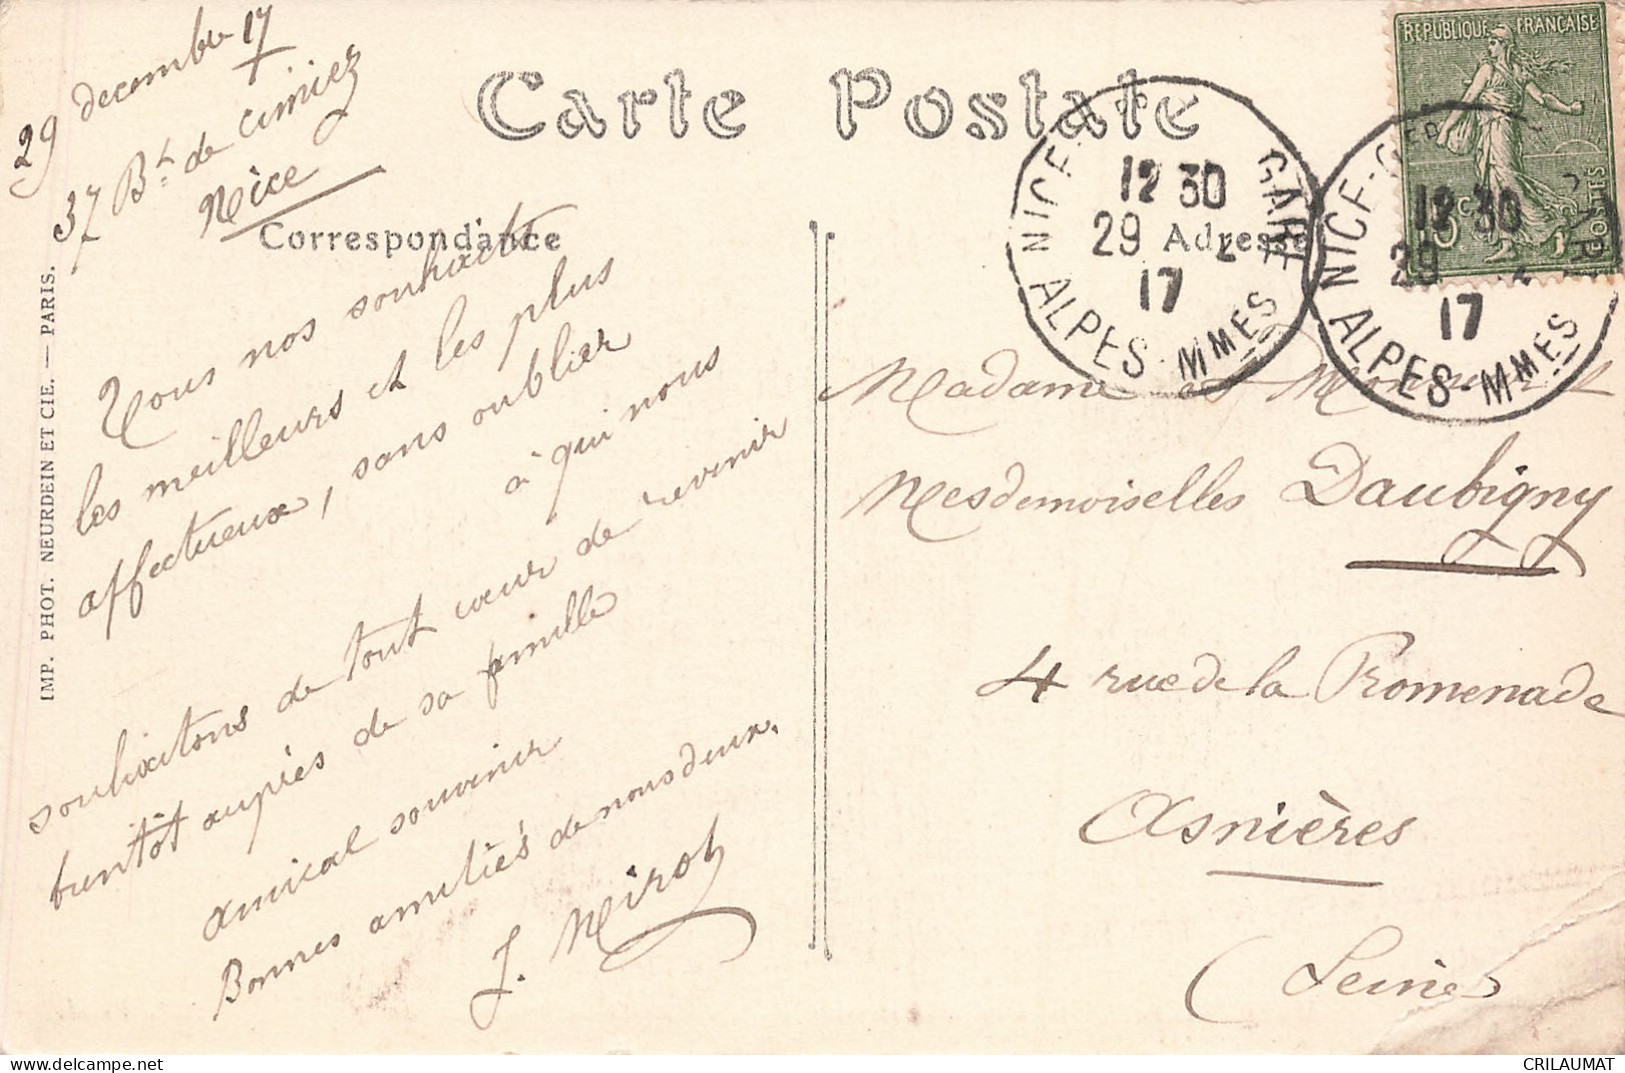 29 decembre 17
37 Bd. de Cimiez
Nice
Carte Postale
Correspondance
Adresse
IMP. PHOT. NEURDEIN ET CIE. — PARIS.
Tous nos souhaits
les meilleurs et les plus
affectueux, sans oublier
à qui nous
souhaitons de tout cœur de revenir
bientôt auprès de sa famille
amical souvenir
Bonnes amitiés de nous deux.
J.
REPUBLIQUE FRANÇAISE
POSTES
NICE GARE
12 30
29
17
ALPES-MMES
NICE
12 30
29
17
ALPES-MMES
Madame et
Mesdemoiselles Daubigny
4 rue de la Promenade
Asnières
(Seine)
CRILAUMAT